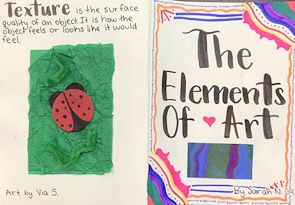 Texture is the surface
quality of an object. It is how the
object feels or looks like it would
feel.
Art by Via S.
The
Elements
Of ♥ Art
By Sarah N.